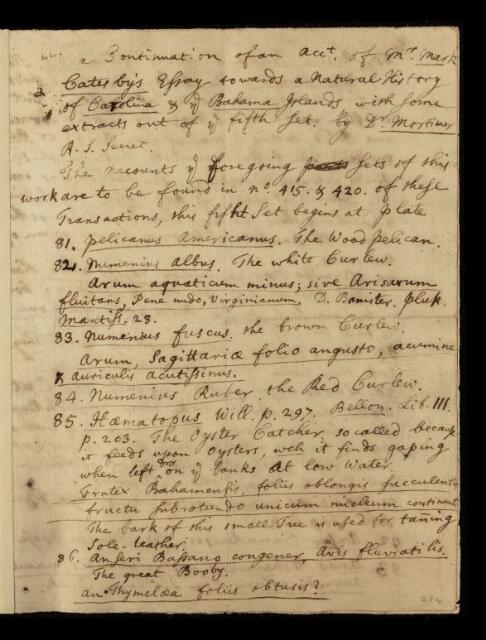 a Continuation of an acct. of Mr. Mark
Catesby's Essay towards a Natural History
of Carolina & ye Bahama Islands with some
extracts out of ye fifth Set. by Dr Mortimer
R. S. Secret.
The accounts of ye foregoing parts sets of this
work are to be found in no. 415. & 420. of these
Transactions, this fifht Set begins at plate
81. pelicanus Americanus. The Wood pelican.
82. Numenius albus. The white Curlew.
Arum aquaticum minus; sive Arisarum
fluitans, Pene nudo, Virginianum. D. Banister. pluk.
Mantiss. 28.
83. Numenius fuscus. the brown Curlew.
Arum, Sagittariæ folio angusto, acumine
& auriculis acutissimus.
84. Numenius Ruber. the Red Curlew.
85. Hæmatopus Will. p. 297. Bellon. Lib. III.
p. 203. The Oyster Catcher, so called because
it feeds upon Oysters, wch it finds gaping
when left dry on ye banks at low Water.
Frutex Bahamensis, foliis oblongis succulentis
fructu subrotundo unicum nucleum continente
The bark of this small Tree is used for taning
Sole-leather.
86. Anseri Bassano congener, avis fluviatilis.
The great Booby.
an Thymelæa foliis obtusis?